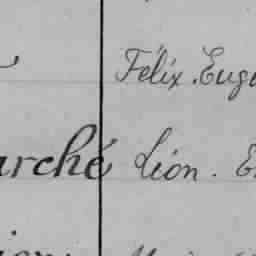 Félix. Eug
arché Léon. E